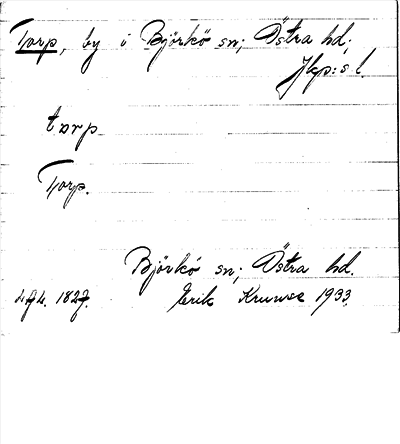 Torp, by i Björkö sn; Östra hd.
Jkp:s l.
torp
Torp.
Björkö sn; Östra hd.
1827. Erik Krunse 1933.